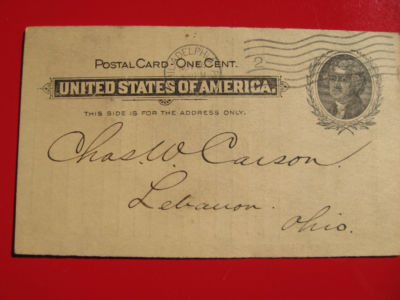 POSTAL CARD - ONE CENT.
UNITED STATES OF AMERICA.
THIS SIDE IS FOR THE ADDRESS ONLY.
2
Chas. W. Carson.
Lebanon.
Ohio.